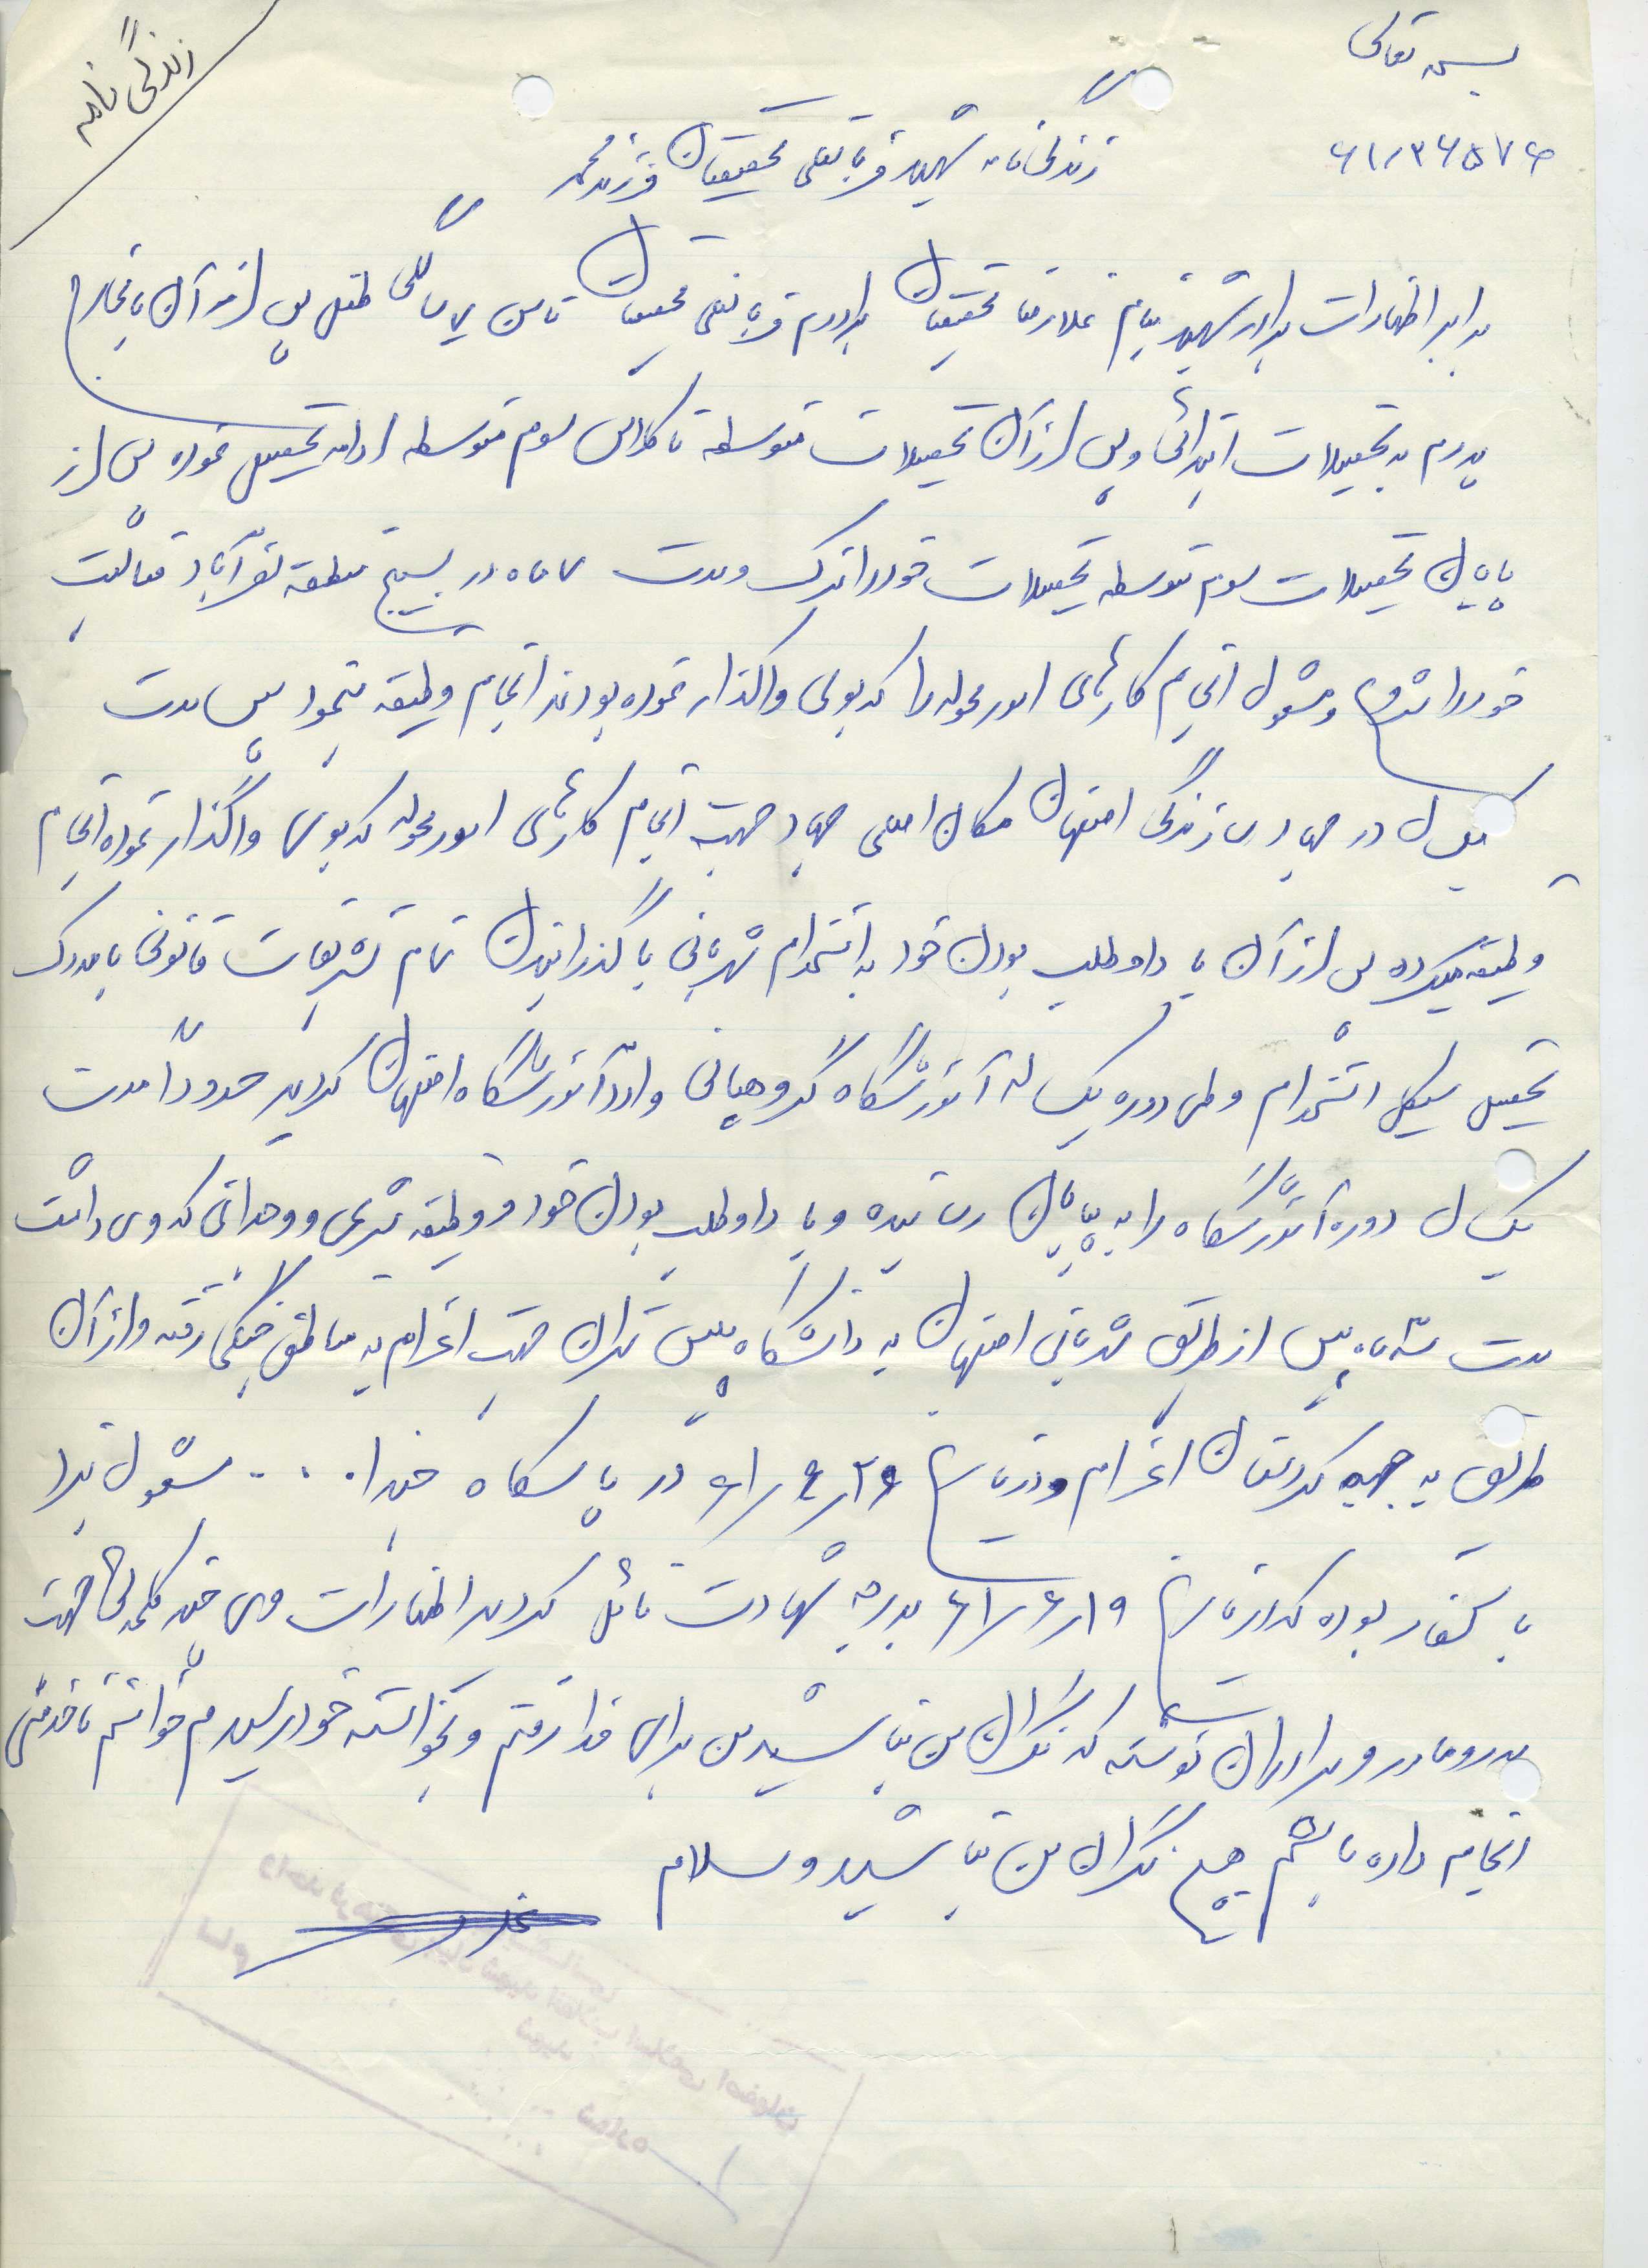 بسمه تعالی
زندگی نامه
۶۱/۳۶۵۷۶
زندگینامه شهید قربانعلی تحقیقیان فرزند محمد
برابر اظهارات برادر شهید بنام غلامرضا تحقیقیان برادرم قربانعلی تحقیقیان تا سن ۷ سالگی طفل پس از آن با تمایل
پدرم به تحصیلات ابتدائی و پس از آن تحصیلات متوسطه تا کلاس سوم متوسطه ادامه تحصیل نموده پس از
پایان تحصیلات سوم متوسطه تحصیلات خود را ترک و مدت ۷ ماه در بسیج منطقه نصرآباد فعالیت
خود را شروع و مشغول انجام کارهای امور محوله را که بوی واگذار نموده بودند انجام وظیفه مینمود پس مدت
یکسال در جهاد سازندگی اصفهان مکان اصلی جهاد جهت انجام کارهای امور محوله که بوی واگذار نموده انجام
وظیفه میکرده پس از آن با داوطلب بودن خود به استخدام شهربانی با گذرانیدن تمام تشریفات قانونی با مدرک
تحصیلی سیکل استخدام و طی دوره یکساله آموزشگاه گروهبانی وارد آموزشگاه اصفهان گردید حدوداً مدت
یکسال دوره آموزشگاه را به پایان رسانیده و با داوطلب بودن خود و وظیفه شرعی و وجدانی که وی داشت
مدت سه ماه پیش از طریق شهربانی اصفهان به دانشگاه پلیس تهران جهت اعزام به مناطق جنگی رفته و از آن
طریق به جبهه کردستان اعزام و در تاریخ ۶۱/۶/۲۶ در پاسگاه خدا... مشغول نبرد
با کفار بوده که در تاریخ ۶۱/۶/۱۹ بدرجه شهادت نائل گردید اظهارات وی چند کلمه ای جهت
پدر و مادر و برادران نوشته که نگران من نباشید من برای خدا رفتم و بخواسته خود رسیدم میخواستم تا خدمتی
انجام داده باشم هیچ نگران من نباشید والسلام